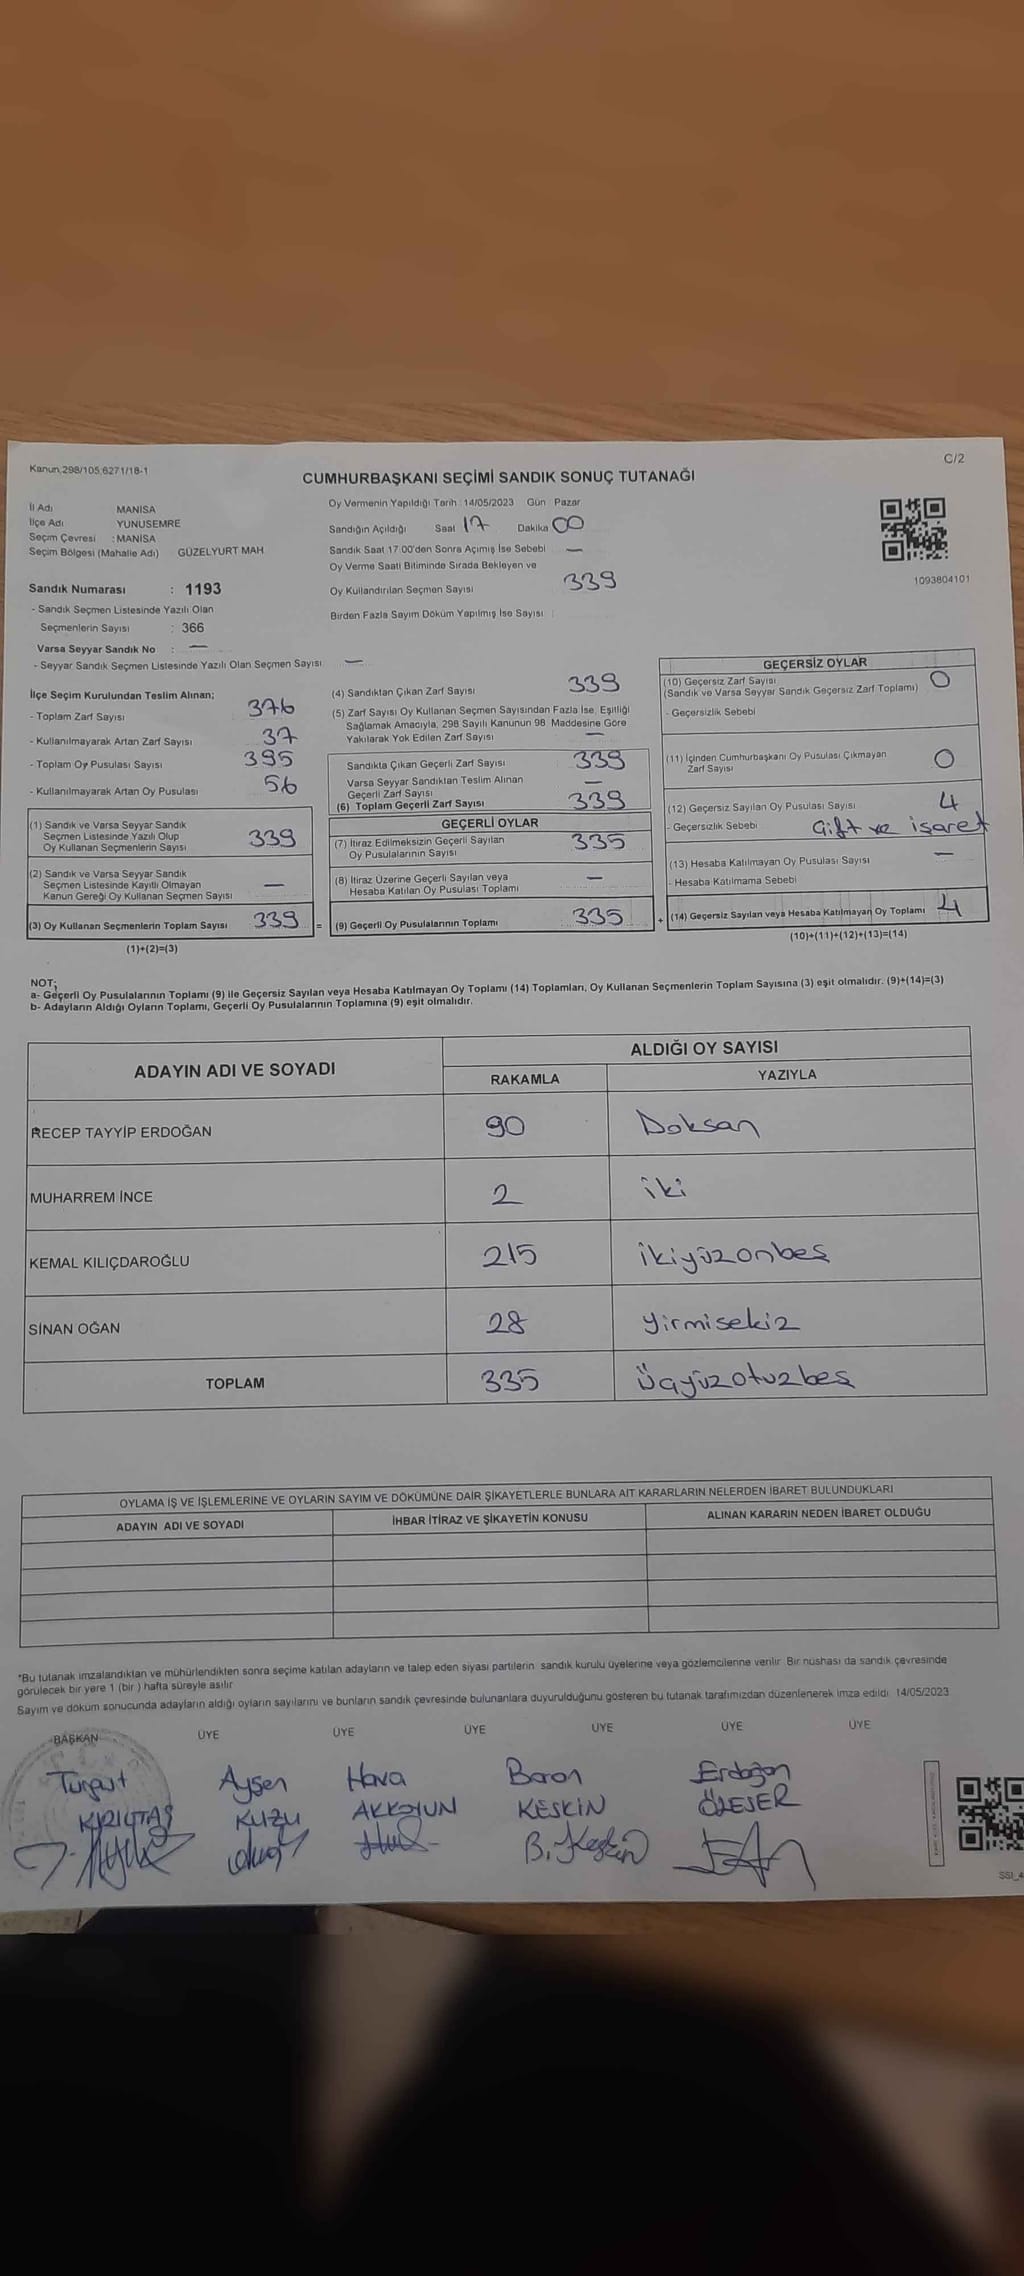 Kanun,298/105,6271/18-1
C/2
CUMHURBAŞKANI SEÇİMİ SANDIK SONUÇ TUTANAĞI
İl Adı MANİSA
İlçe Adı YUNUSEMRE
Seçim Çevresi : MANİSA
Seçim Bölgesi (Mahalle Adı) GÜZELYURT MAH
Sandık Numarası : 1193
- Sandık Seçmen Listesinde Yazılı Olan
Seçmenlerin Sayısı : 366
Varsa Seyyar Sandık No : —
- Seyyar Sandık Seçmen Listesinde Yazılı Olan Seçmen Sayısı —
Oy Vermenin Yapıldığı Tarih : 14/05/2023 Gün Pazar
Sandığın Açıldığı Saat 17 Dakika 00
Sandık Saat 17:00'den Sonra Açımış İse Sebebi —
Oy Verme Saati Bitiminde Sırada Bekleyen ve
Oy Kullandırılan Seçmen Sayısı 339
Birden Fazla Sayım Döküm Yapılmış İse Sayısı :
1093804101
İlçe Seçim Kurulundan Teslim Alınan;
- Toplam Zarf Sayısı 376
- Kullanılmayarak Artan Zarf Sayısı 37
- Toplam Oy Pusulası Sayısı 395
- Kullanılmayarak Artan Oy Pusulası 56
(1) Sandık ve Varsa Seyyar Sandık
Seçmen Listesinde Yazılı Olup
Oy Kullanan Seçmenlerin Sayısı 339
(2) Sandık ve Varsa Seyyar Sandık
Seçmen Listesinde Kayıtlı Olmayan
Kanun Gereği Oy Kullanan Seçmen Sayısı —
(3) Oy Kullanan Seçmenlerin Toplam Sayısı 339 =
(1)+(2)=(3)
(4) Sandıktan Çıkan Zarf Sayısı 339
(5) Zarf Sayısı Oy Kullanan Seçmen Sayısından Fazla İse, Eşitliği
Sağlamak Amacıyla, 298 Sayılı Kanunun 98 Maddesine Göre
Yakılarak Yok Edilen Zarf Sayısı —
Sandıkta Çıkan Geçerli Zarf Sayısı 339
Varsa Seyyar Sandıktan Teslim Alınan
Geçerli Zarf Sayısı —
(6) Toplam Geçerli Zarf Sayısı 339
GEÇERLİ OYLAR
(7) İtiraz Edilmeksizin Geçerli Sayılan
Oy Pusulalarının Sayısı 335
(8) İtiraz Üzerine Geçerli Sayılan veya
Hesaba Katılan Oy Pusulası Toplamı —
(9) Geçerli Oy Pusulalarının Toplamı 335 +
GEÇERSİZ OYLAR
(10) Geçersiz Zarf Sayısı 0
(Sandık ve Varsa Seyyar Sandık Geçersiz Zarf Toplamı)
- Geçersizlik Sebebi
(11) İçinden Cumhurbaşkanı Oy Pusulası Çıkmayan
Zarf Sayısı 0
(12) Geçersiz Sayılan Oy Pusulası Sayısı 4
- Geçersizlik Sebebi Çift ve işaret
(13) Hesaba Katılmayan Oy Pusulası Sayısı —
- Hesaba Katılmama Sebebi
(14) Geçersiz Sayılan veya Hesaba Katılmayan Oy Toplamı 4
(10)+(11)+(12)+(13)=(14)
NOT;
a- Geçerli Oy Pusulalarının Toplamı (9) ile Geçersiz Sayılan veya Hesaba Katılmayan Oy Toplamı (14) Toplamları, Oy Kullanan Seçmenlerin Toplam Sayısına (3) eşit olmalıdır. (9)+(14)=(3)
b- Adayların Aldığı Oyların Toplamı, Geçerli Oy Pusulalarının Toplamına (9) eşit olmalıdır.
ADAYIN ADI VE SOYADI ALDIĞI OY SAYISI
RAKAMLA YAZIYLA
RECEP TAYYİP ERDOĞAN 90 Doksan
MUHARREM İNCE 2 iki
KEMAL KILIÇDAROĞLU 215 ikiyüzonbeş
SİNAN OĞAN 28 yirmisekiz
TOPLAM 335 üçyüzotuzbeş
OYLAMA İŞ VE İŞLEMLERİNE VE OYLARIN SAYIM VE DÖKÜMÜNE DAİR ŞİKAYETLERLE BUNLARA AİT KARARLARIN NELERDEN İBARET BULUNDUKLARI
ADAYIN ADI VE SOYADI İHBAR İTİRAZ VE ŞİKAYETİN KONUSU ALINAN KARARIN NEDEN İBARET OLDUĞU
*Bu tutanak imzalandıktan ve mühürlendikten sonra seçime katılan adayların ve talep eden siyasi partilerin sandık kurulu üyelerine veya gözlemcilerine verilir Bir nüshası da sandık çevresinde
görülecek bir yere 1 (bir) hafta süreyle asılır
Sayım ve döküm sonucunda adayların aldığı oyların sayılarını ve bunların sandık çevresinde bulunanlara duyurulduğunu gösteren bu tutanak tarafımızdan düzenlenerek imza edildi. 14/05/2023
BAŞKAN ÜYE ÜYE ÜYE ÜYE ÜYE ÜYE
Turgut Ayşen Hava Baran Erdoğan
KUZU AKKOYUN KESKİN
B. Keskin